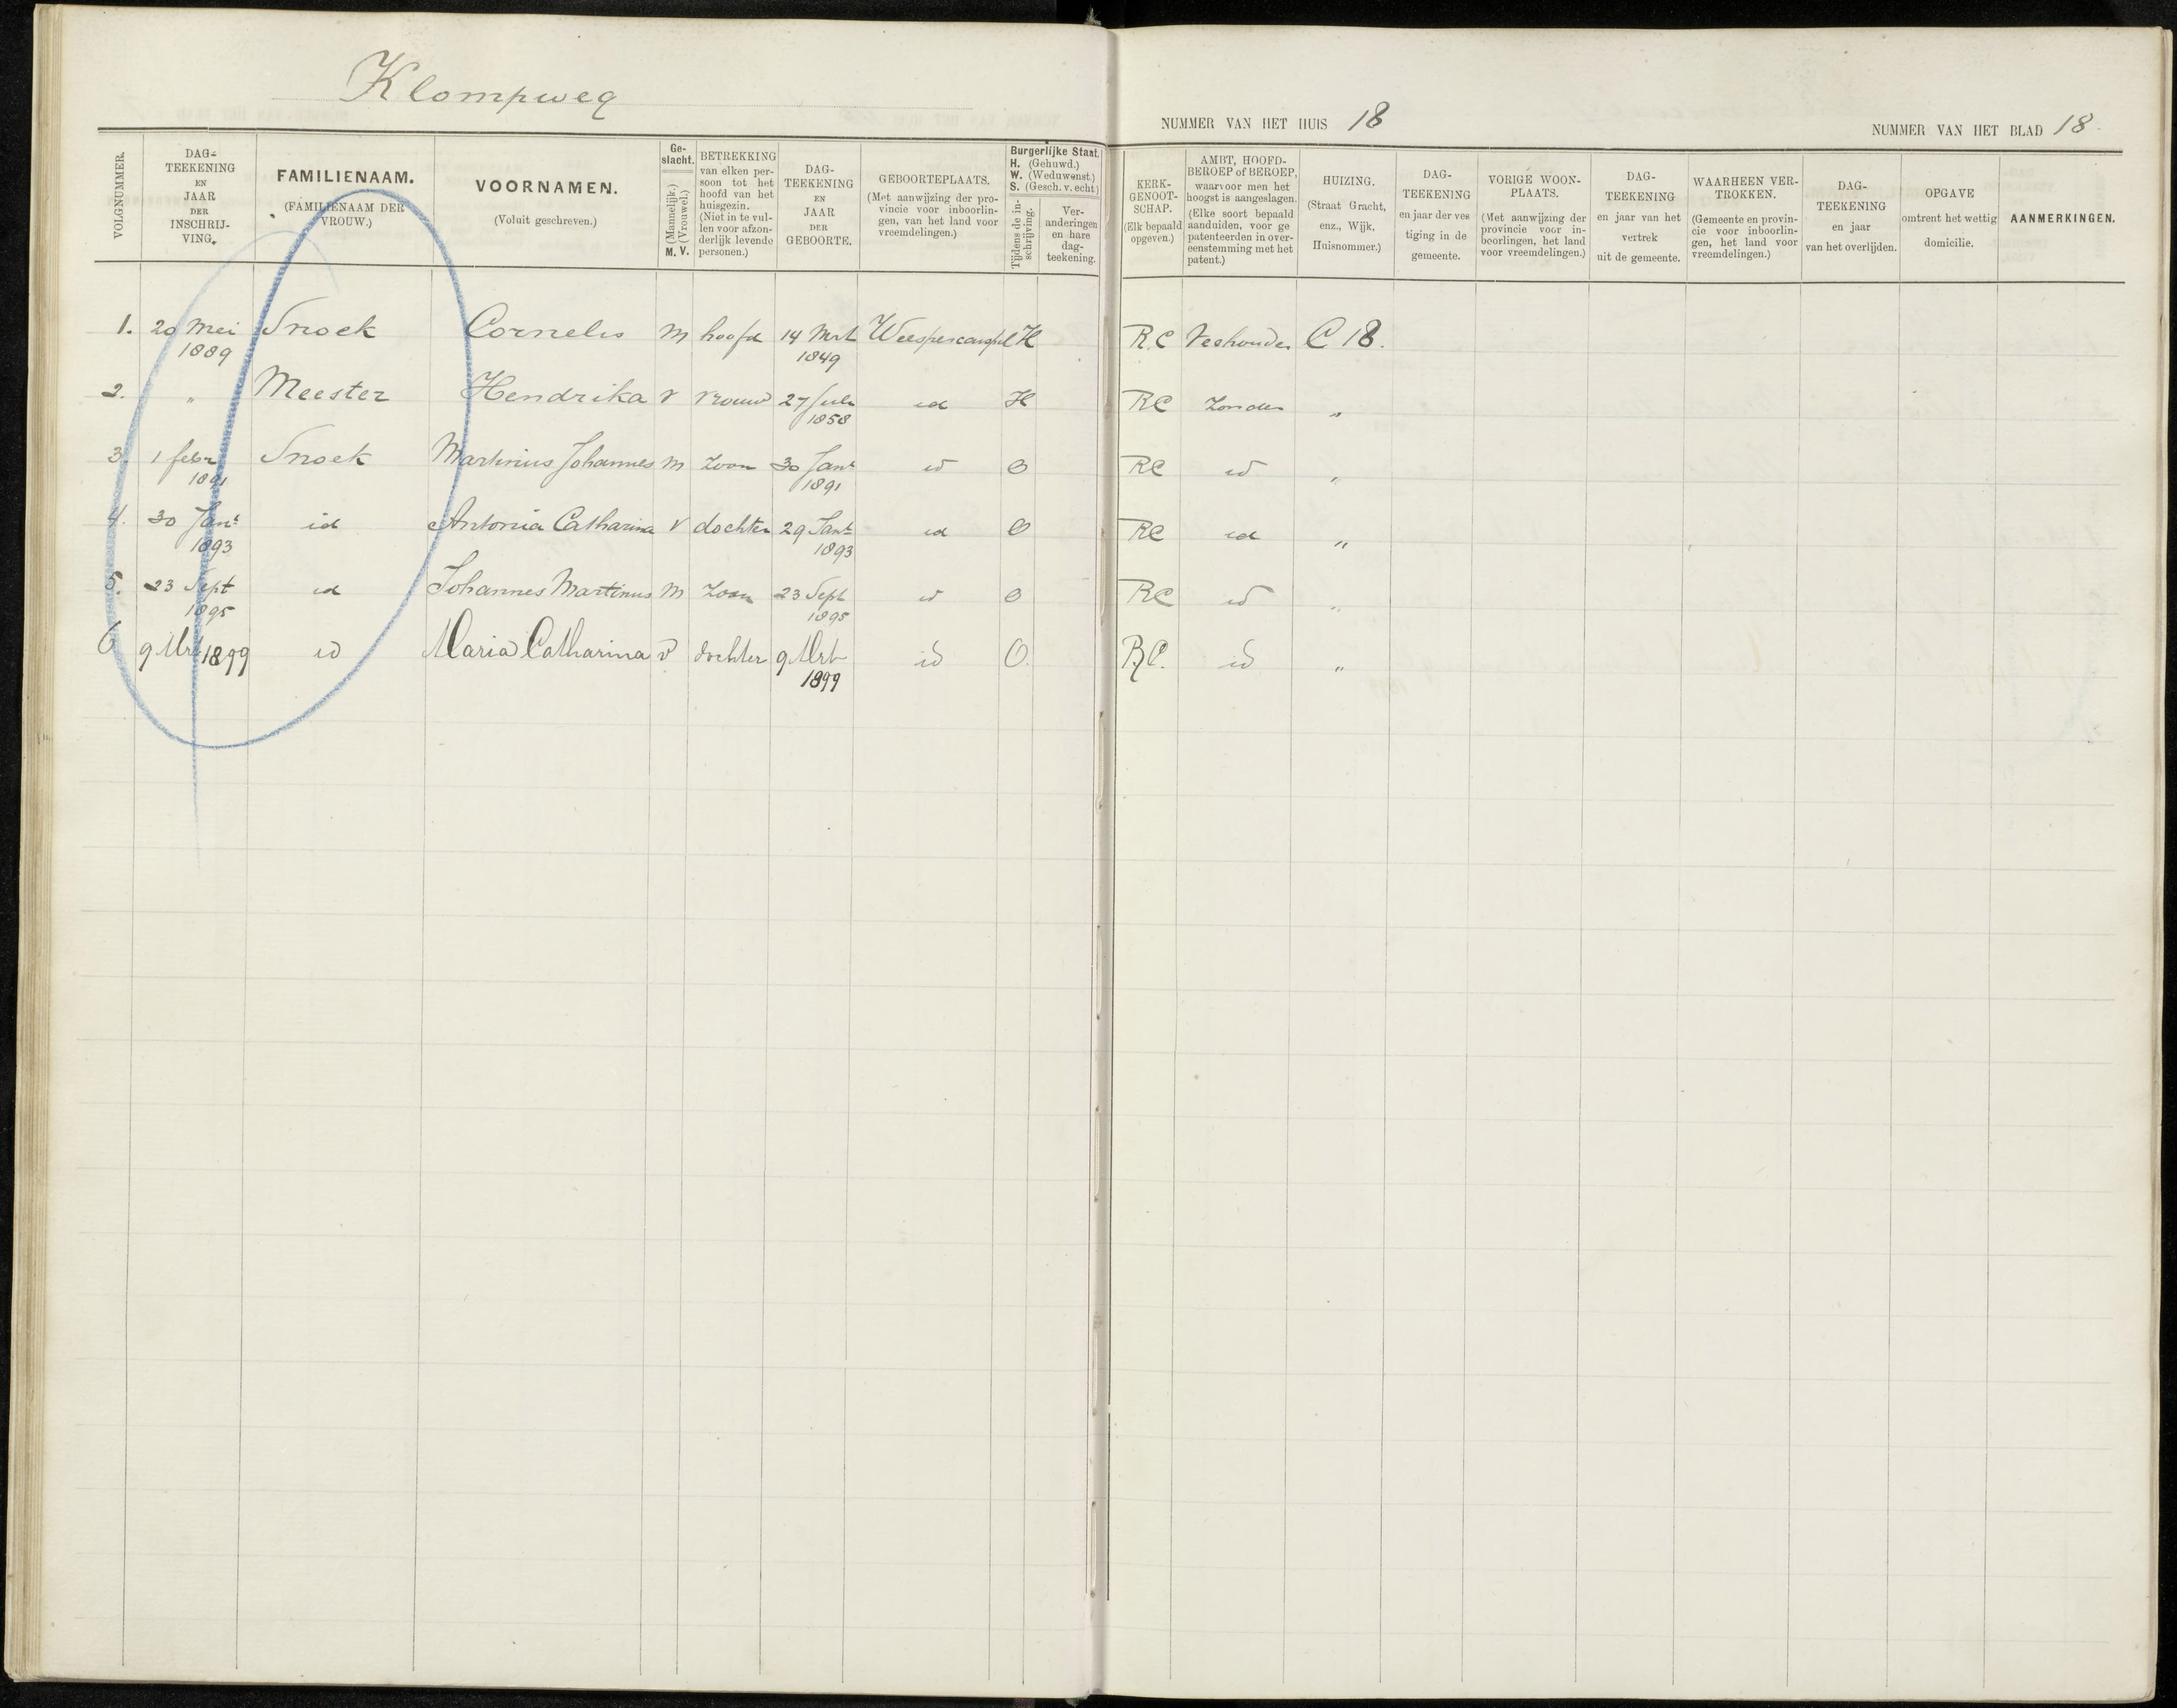 Klompweg
NUMMER VAN HET HUIS 18
NUMMER VAN HET BLAD 18.
VOLGNUMMER.
DAG-
TEEKENING
EN
JAAR
DER
INSCHRIJ-
VING.
FAMILIENAAM.
(FAMILIENAAM DER
VROUW.)
VOORNAMEN.
(Voluit geschreven.)
Ge-
slacht.
(Mannelijk.)
(Vrouwel.)
M. V.
BETREKKING
van elken per-
soon tot het
hoofd van het
huisgezin.
(Niet in te vul-
len voor afzon-
derlijk levende
personen.)
DAG-
TEEKENING
EN
JAAR
DER
GEBOORTE.
GEBOORTEPLAATS.
(Met aanwijzing der pro-
vincie voor inboorlin-
gen, van het land voor
vreemdelingen.)
Burgerlijke Staat.
H. (Gehuwd.)
W. (Weduwenst.)
S. (Gesch. v. echt)
Tijdens de in-
schrijving.
Ver-
anderingen
en hare
dag-
teekening.
KERK-
GENOOT-
SCHAP.
(Elk bepaald
opgeven.)
AMBT, HOOFD-
BEROEP of BEROEP,
waarvoor men het
hoogst is aangeslagen.
(Elke soort bepaald
aanduiden, voor ge
patenteerden in over-
eenstemming met het
patent.)
HUIZING.
(Straat Gracht,
enz., Wijk,
Huisnommer.)
DAG-
TEEKENING
en jaar der ves
tiging in de
gemeente.
VORIGE WOON-
PLAATS.
(Met aanwijzing der
provincie voor in-
boorlingen, het land
voor vreemdelingen.)
DAG-
TEEKENING
en jaar van het
vertrek
uit de gemeente.
WAARHEEN VER-
TROKKEN.
(Gemeente en provin-
cie voor inboorlin-
gen, het land voor
vreemdelingen.)
DAG-
TEEKENING
en jaar
van het overlijden.
OPGAVE
omtrent het wettig
domicilie.
AANMERKINGEN.
1. 20 Mei Snoek Cornelis M hoofd 14 Mrt Weespercarspel H RC Veehouder C 18.
1889 1849
2. " Meester Hendrika V vrouw 27 Juli id H RC Zonder "
1858
3. 1 febr Snoek Martinus Johannes M zoon 30 Jant id O RC id "
1891 1891
4. 30 Jant id Antonia Catharina V dochter 29 Jant id O RC id "
1893 1893
5. 23 Sept id Johannes Martinus M zoon 23 Sept id O RC id "
1895 1895
6 9 Mrt 1899 id Maria Catharina V dochter 9 Mrt id O. R.C. id "
1899